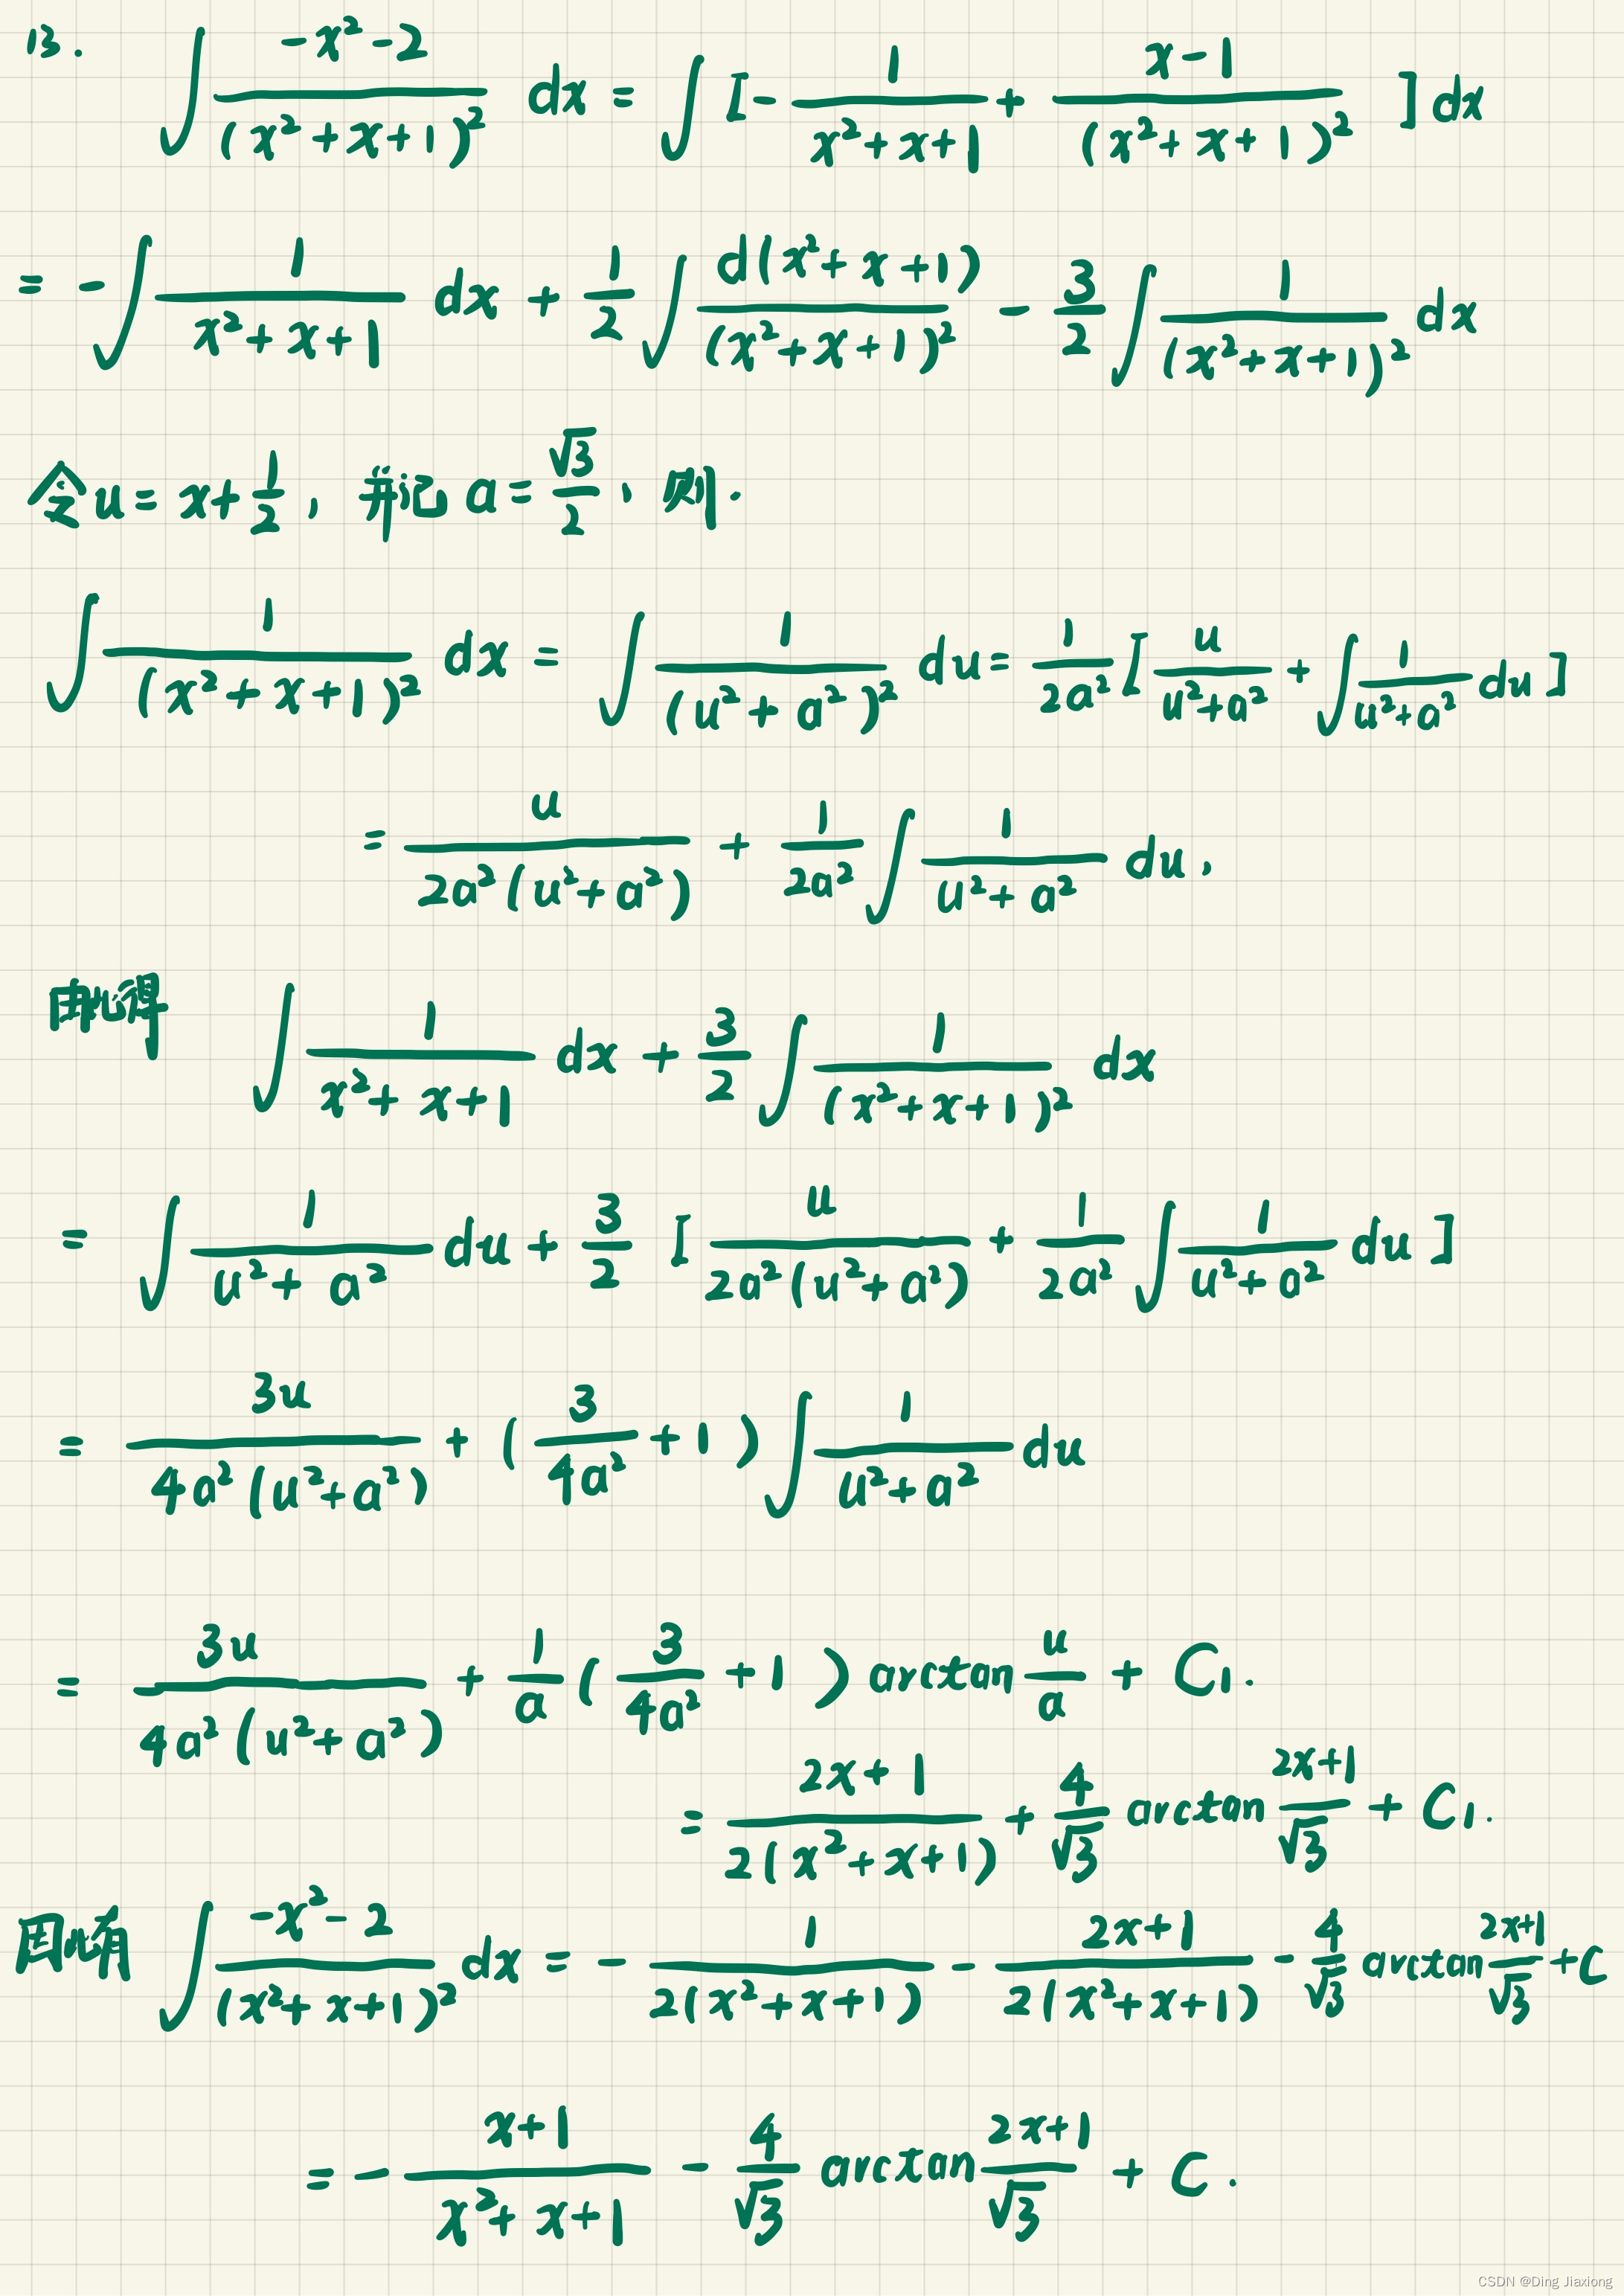 13. ∫ (-x²-2)/(x²+x+1)² dx = ∫ [-1/(x²+x+1) + (x-1)/(x²+x+1)²] dx
= -∫ 1/(x²+x+1) dx + 1/2 ∫ d(x²+x+1)/(x²+x+1)² - 3/2 ∫ 1/(x²+x+1)² dx
令u = x+1/2, 并记 a = √3/2, 则.
∫ 1/(x²+x+1)² dx = ∫ 1/(u²+a²)² du = 1/2a² [u/(u²+a²) + ∫ 1/(u²+a²) du]
= u/2a²(u²+a²) + 1/2a² ∫ 1/(u²+a²) du,
由此得 ∫ 1/(x²+x+1) dx + 3/2 ∫ 1/(x²+x+1)² dx
= ∫ 1/(u²+a²) du + 3/2 [u/2a²(u²+a²) + 1/2a² ∫ 1/(u²+a²) du]
= 3u/4a²(u²+a²) + (3/4a² + 1) ∫ 1/(u²+a²) du
= 3u/4a²(u²+a²) + 1/a (3/4a² + 1) arctan u/a + C₁.
= (2x+1)/2(x²+x+1) + 4/√3 arctan (2x+1)/√3 + C₁.
因此有 ∫ (-x²-2)/(x²+x+1)² dx = -1/2(x²+x+1) - (2x+1)/2(x²+x+1) - 4/√3 arctan (2x+1)/√3 + C
= -(x+1)/(x²+x+1) - 4/√3 arctan (2x+1)/√3 + C.
CSDN @Ding Jiaxiong